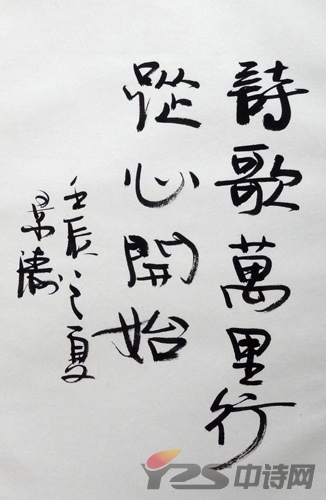 詩歌萬里行
從心開始
壬辰之夏
景濤
YZS中诗网